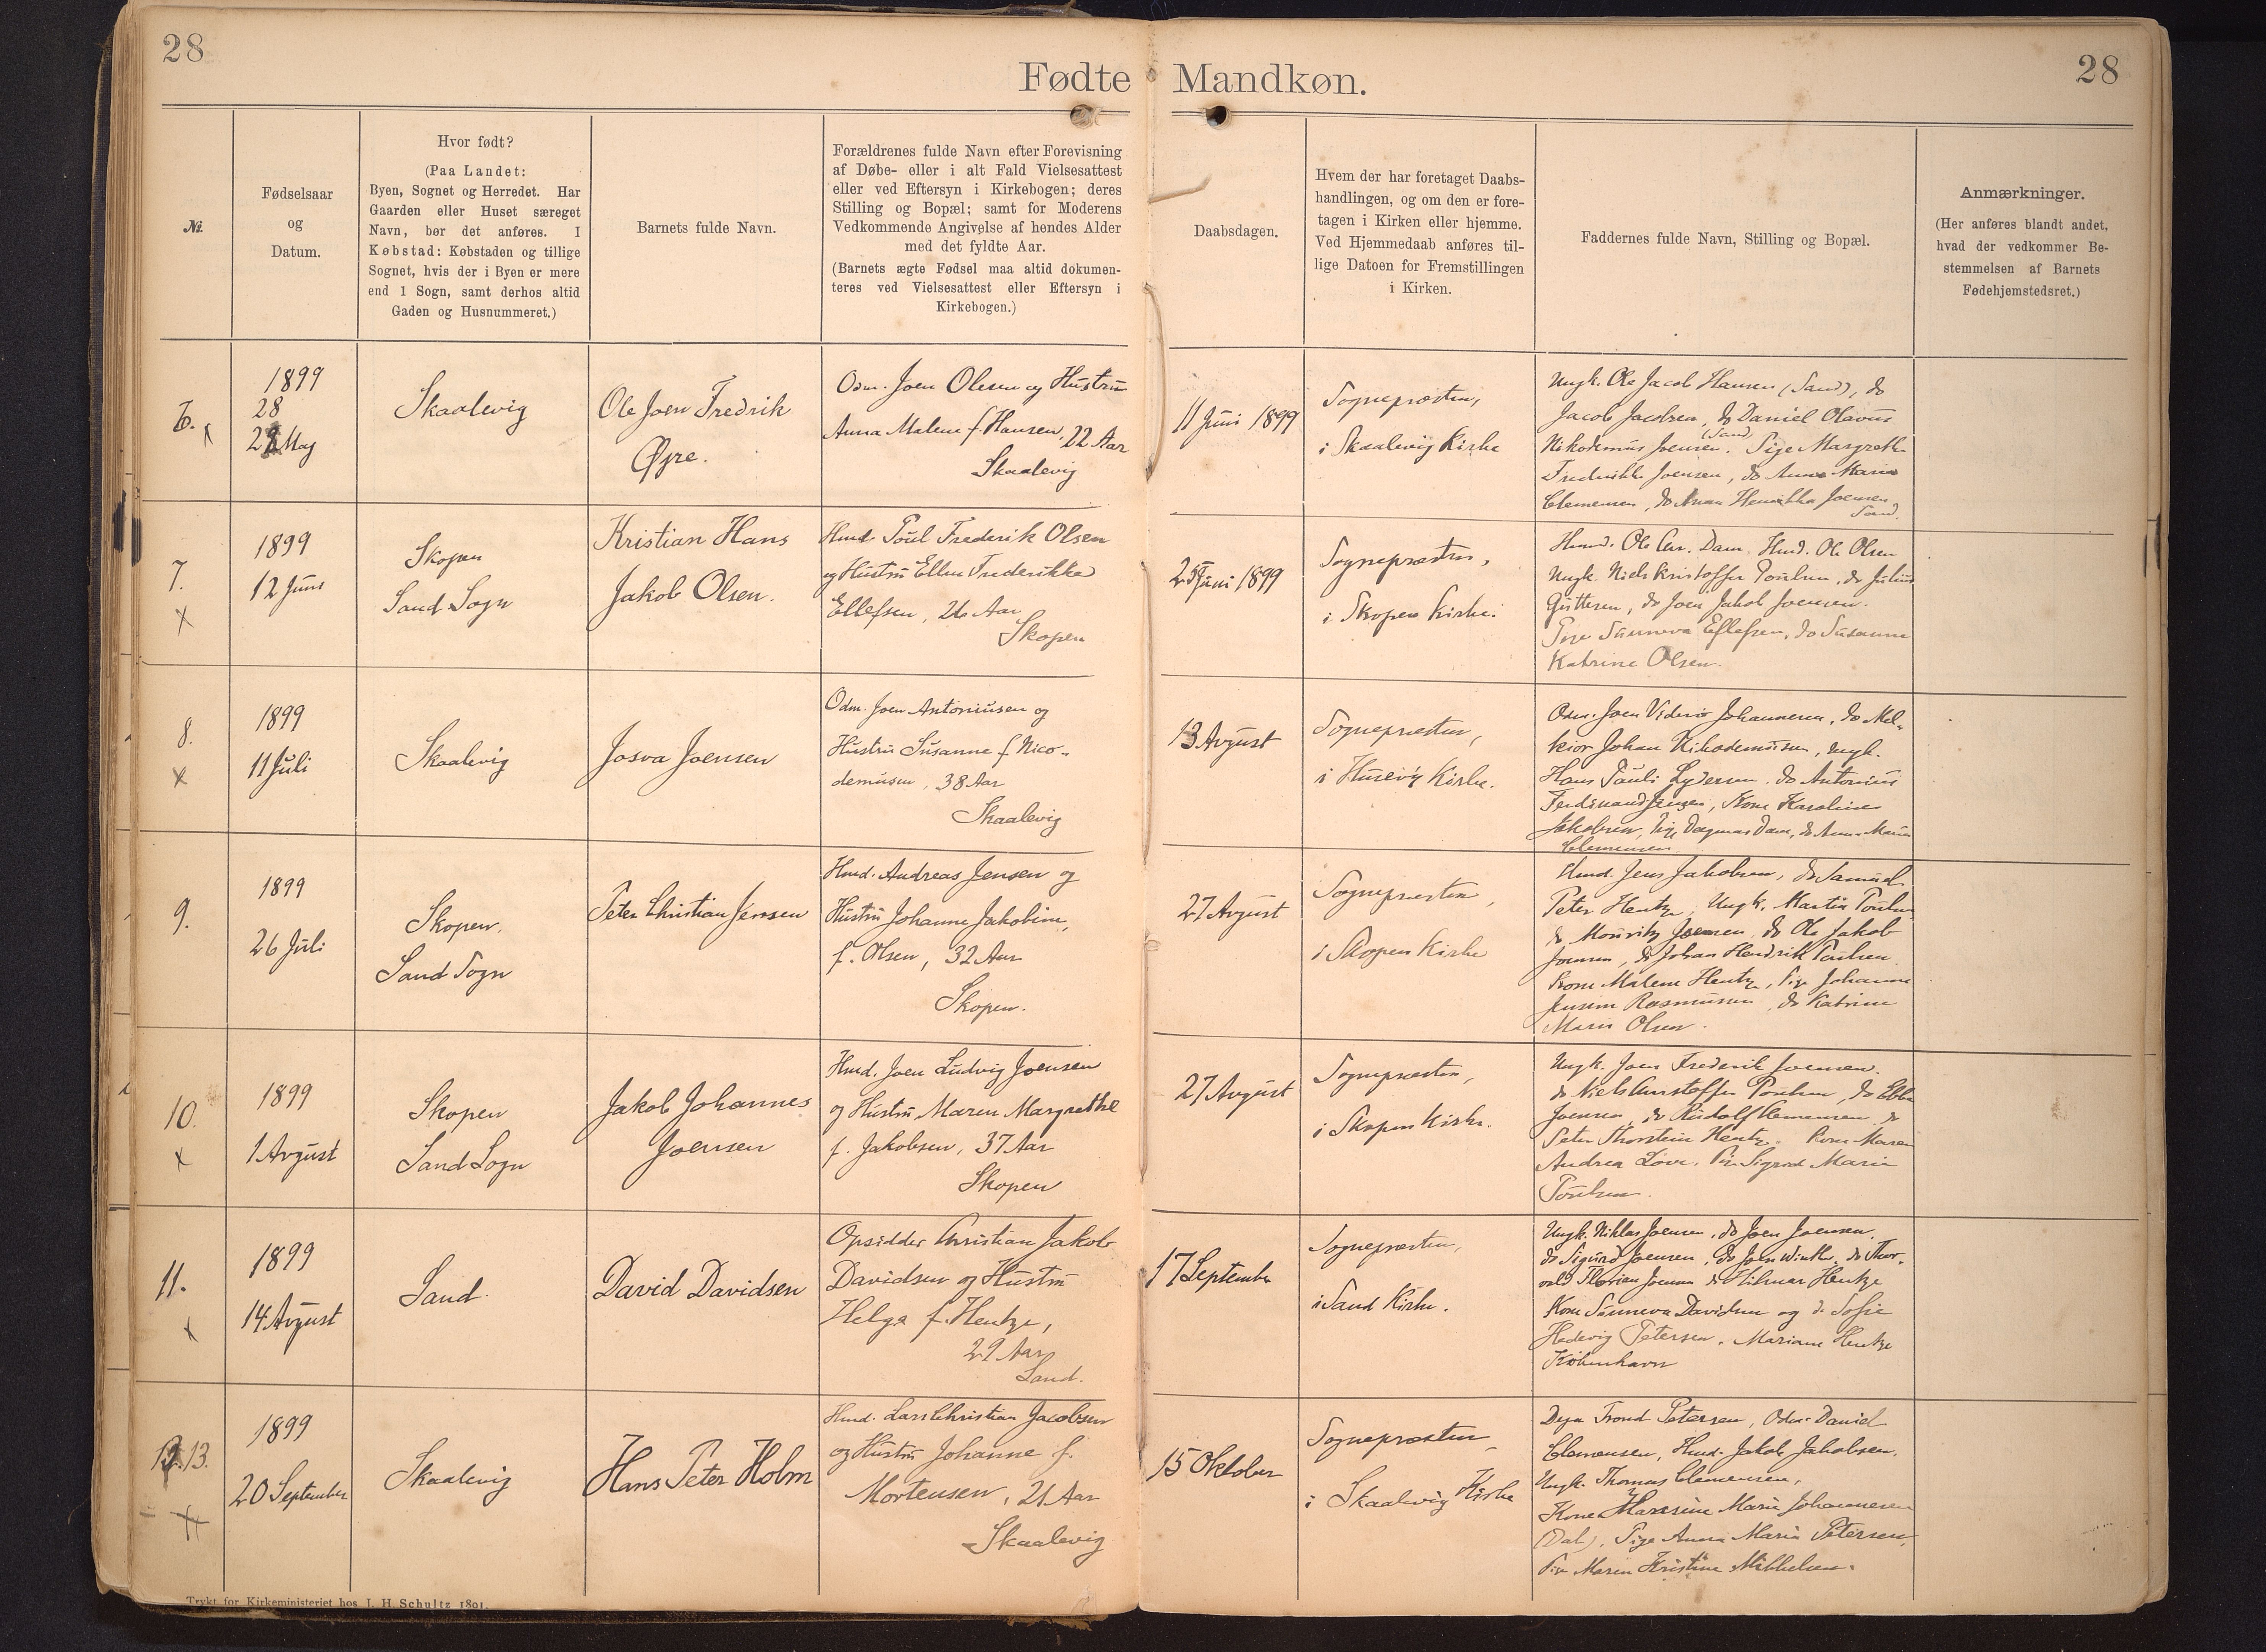 28
Fødte Mandkøn.
28
№.
Fødselsaar
og
Datum.
Hvor født?
(Paa Landet:
Byen, Sognet og Herredet. Har
Gaarden eller Huset særeget
Navn, bør det anføres. I
Købstad: Købstaden og tillige
Sognet, hvis der i Byen er mere
end 1 Sogn, samt derhos altid
Gaden og Husnummeret.)
Barnets fulde Navn.
Forældrenes fulde Navn efter Forevisning
af Døbe- eller i alt Fald Vielsesattest
eller ved Eftersyn i Kirkebogen; deres
Stilling og Bopæl; samt for Moderens
Vedkommende Angivelse af hendes Alder
med det fyldte Aar.
(Barnets ægte Fødsel maa altid dokumen-
teres ved Vielsesattest eller Eftersyn i
Kirkebogen.)
Daabsdagen.
Hvem der har foretaget Daabs-
handlingen, og om den er fore-
tagen i Kirken eller hjemme.
Ved Hjemmedaab anføres til-
lige Datoen for Fremstillingen
i Kirken.
Faddernes fulde Navn, Stilling og Bopæl.
Anmærkninger.
(Her anføres blandt andet,
hvad der vedkommer Be-
stemmelsen af Barnets
Fødehjemstedsret.)
6.
1899
28
Maj
Skaalevig
Ole Joen Fredrik
Øjre.
Odm. Joen Olesen og Hustru
Anna Malene f. Hansen, 22 Aar
Skaalevig
11 Juni 1899
Sognepræsten,
i Skaalevig Kirke
Ungk. Ole Jacob Hansen (Sand), do
Jacob Jacobsen, do Daniel Olavus
(Sand)
Nikodemus Joensen. Pige Margrethe
Frederikke Joensen, do Anna Maria
Clemensen, do Joensen
Sand.
7.
1899
12 Juni
Skopen
Sand Sogn
Kristian Hans
Jakob Olsen.
Hmd. Poul Frederik Olsen
og Hustru Ellen Frederikke
Ellefsen, 26 Aar
Skopen
25 Juni 1899
Sognepræsten,
i Skopen Kirke.
Hmd. Ole Chr. Dam Hmd. Ole Olsen
Ungk. Niels Kristoffer Poulsen, do Julius
Guttesen, do Joen Jakob Joensen.
Pige Sunneva Ellefsen, do Susanne
Katrine Olsen.
8.
1899
11 Juli
Skaalevig
Josva Joensen
Odm. Joen Antoniusen og
Hustru Susanne f. Nico-
demusen, 38 Aar
Skaalevig
13 Avgust
Sognepræsten,
i Husevig Kirke.
Odm. Joen Viderø Johannesen, do Mel-
kior Johan Nikodemusen, Ungk.
Hans Pauli Lydersen, do Antonius
Ferdinand Jensen, Kone Karoline
Jakobsen, Pige Dagmar Dam, do Anna Maria
Clemensen
9.
1899
26 Juli
Skopen.
Sand Sogn
Peter Christian Jensen
Hmd. Andreas Jensen og
Hustru Johanne Jakobine,
f. Olsen, 32 Aar
Skopen.
27 Avgust
Sognepræsten,
i Skopen Kirke
Hmd. Jens Jakobsen, do Samuel
Peter Hentze, Ungk. Martin Poulsen
do Mouritz Joensen, do Ole Jakob
Joensen, do Johan Hendrik Poulsen
Kone Malene Hentze, Pige Johanne
Jensine Rasmussen, do Katrine
Maria Olsen.
10.
1899
1 Avgust
Skopen
Sand Sogn
Jakob Johannes
Joensen
Hmd. Joen Ludvig Joensen
og Hustru Maren Margrethe
f. Jakobsen, 37 Aar
Skopen
27 Avgust
Sognepræsten,
i Skopen Kirke.
Ungk. Joen Frederik Joensen.
do Niels Christoffer Poulsen, do Ebbe
Joensen, do Rudolf Clemensen, do
Peter Thorstein Hentze. Kone Maren
Andrea Løve, Pige Sigrid Maria
Poulsen.
11.
1899
14 Avgust
Sand
David Davidsen
Opsidder Christian Jakob
Davidsen og Hustru
Helga f. Hentze,
29 Aar
Sand.
17 September
Sognepræsten,
i Sand Kirke.
Ungk. Niklas Joensen, do Joen Joensen,
do Sigurd Joensen, do Joen Winther, do Thor-
vald Florian Joensen do Hilmar Hentze
Kone Sunneva Davidsen og do Sofie
Hedevig Petersen. Mariane Hentze
København
13.
1899
20 September
Skaalevig
Hans Peter Holm
Hmd. Lars Christian Jacobsen
og Hustru Johanne f.
Mortensen, 21 Aar
Skaalevig
15 Oktober
Sognepræsten
i Skaalevig Kirke
Degn Trond Petersen, Odm. Daniel
Clemensen, Hmd. Jakob Jakobsen,
Ungk. Thomas Clemensen,
Kone Maria Johannesen
(Dal), Pige Anna Maria Petersen,
Pige Maren Kristine Mikkelsen.
Trykt for Kirkeministeriet hos J. H. Schultz 1891.